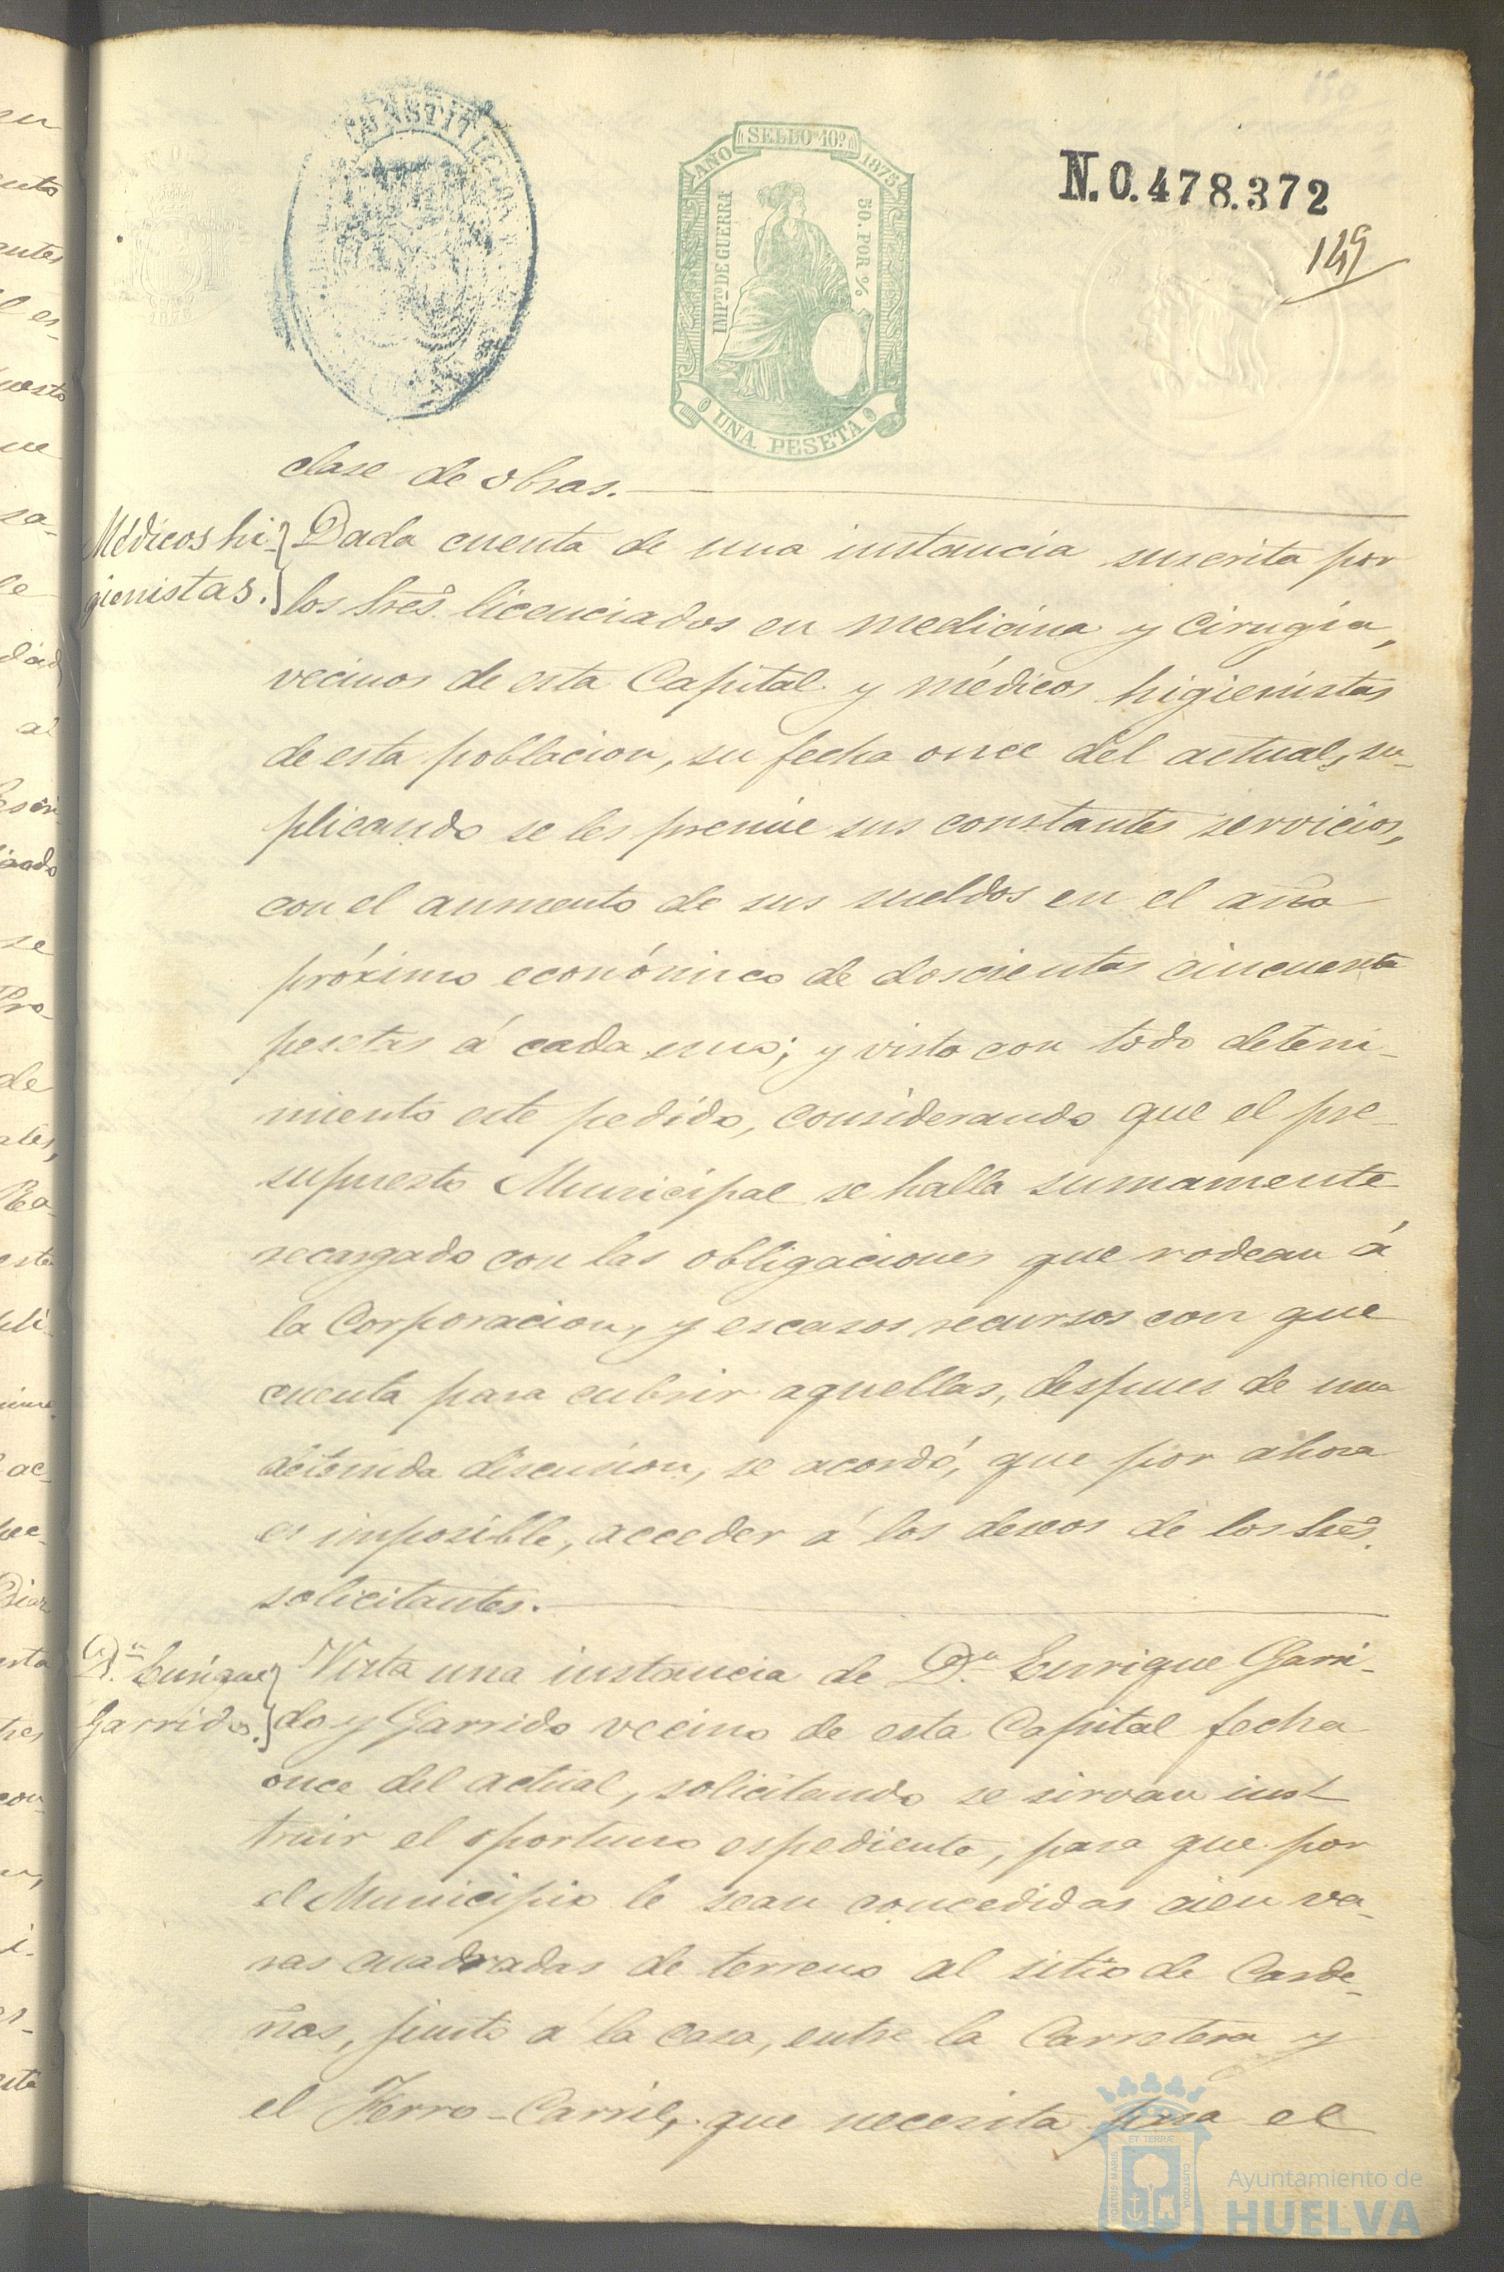 CONSTITUCION
AÑO SELLO 10º 1875
IMPTO DE GUERRA
50. POR %
UNA PESETA
N. 0.478.372
149
clase de obras.
Médicos hi-
gienistas.
Dada cuenta de una instancia suscrita por
los Sres. licenciados en medicina y cirugía,
vecinos de esta Capital y médicos higienistas
de esta poblacion, su fecha once del actual, su-
plicando se les premie sus constantes servicios,
con el aumento de sus sueldos en el año
próximo económico de doscientas cincuenta
pesetas á cada uno; y visto con todo deteni-
miento este pedido, considerando que el pre-
supuesto Municipal se halla sumamente
recargado con las obligaciones que rodean á
la Corporacion, y escasos recursos con que
cuenta para cubrir aquellas, despues de una
detenida discusion, se acordó, que por ahora
es imposible, acceder á los deseos de los Sres.
solicitantes.
Dn. Enrique
Garrido.
Vista una instancia de Dn. Enrique Garri-
do y Garrido vecino de esta Capital fecha
once del actual, solicitando se sirvan inst
truir el oportuno espediente, para que por
el Municipio le sean concedidas cien va-
ras cuadradas de terreno al sitio de Carde-
ñas, junto á la casa, entre la Carretera y
el Ferro-Carril, que necesita para el
Ayuntamiento de
HUELVA